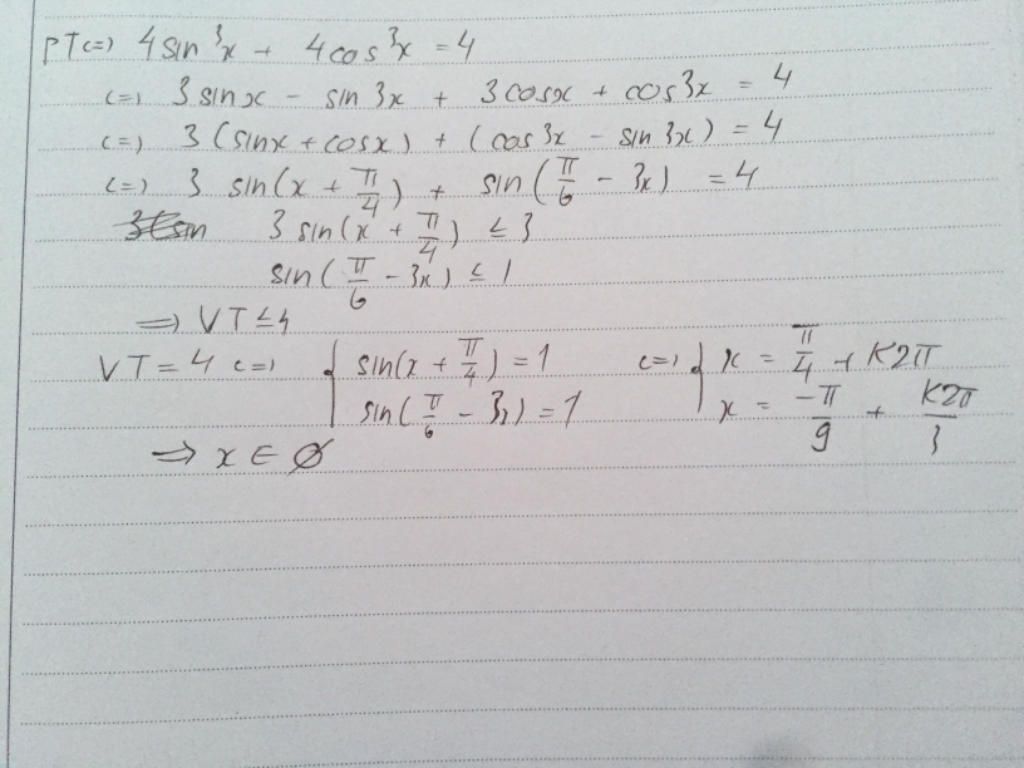 PT <=> 4 sin³x + 4 cos³x = 4
<=> 3 sinx - sin 3x + 3 cosx + cos3x = 4
<=> 3 (sinx + cosx) + (cos 3x - sin 3x) = 4
<=> 3 sin(x + π/4) + sin(π/6 - 3x) = 4
3 sin(x + π/4) ≤ 3
sin(π/6 - 3x) ≤ 1
=> VT ≤ 4
VT = 4 <=> { sin(x + π/4) = 1 <=> { x = π/4 + K2π
sin(π/6 - 3x) = 1 x = -π/9 + K2π/3
=> x ∈ Ø